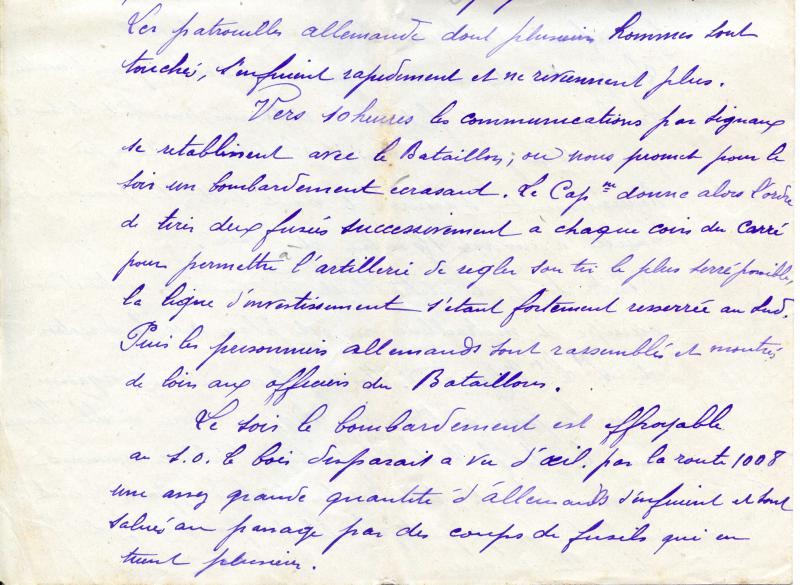 Les patrouilles allemande dont plusieurs hommes sont
touchés, s'enfuient rapidement et ne reviennent plus.
Vers 10 heures les communications par signaux
se retablissent avec le Bataillon; on nous promet pour le
soir un bombardement écrasant. Le Cap^ne donne alors l'ordre
de tirer deux fusées successivement a chaque coin du Carré
pour permettre à l'artillerie de regler son tir le plus serré possible,
la ligne d'investissement s'étant fortement resserrée au Sud.
Puis les prisonniers allemands sont rassemblés et montrés
de loin aux officiers du Bataillons.
Le soir le bombardement est effroyable
au S.O. le bois disparait a vu d'œil. par la route 1008
une assez grande quantité d'allemands s'enfuient et sont
salués au passage par des coups de fusils qui en
tuent plusieurs.